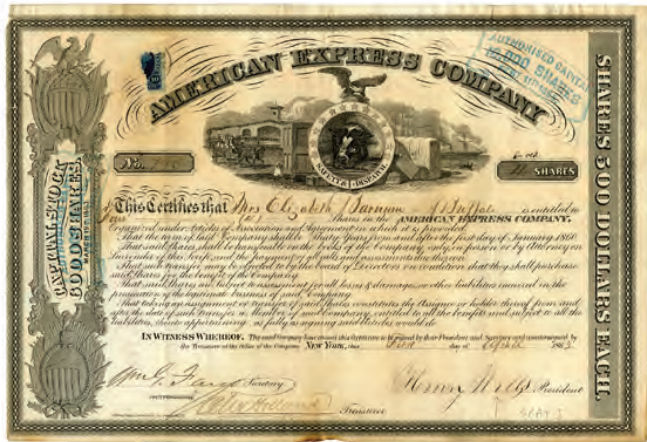 AMERICAN EXPRESS COMPANY
AUTHORISED CAPITAL
SHARES
SAFETY & DISPATCH
No.
SHARES
CAPITAL STOCK
6000 SHARES
SHARES 500 DOLLARS EACH.
This Certifies that Mrs Elizabeth of Buffalo is entitled to
Shares in the AMERICAN EXPRESS COMPANY,
Organized under Articles of Association and Agreement in which it is provided,
That the term of said Company shall be Thirty Years from and after the first day of January 1860.
That said Shares, shall be transferable on the books of the Company, only, in person or by Attorney on
Surrender of this Scrip, and the payment of all calls and assessments due thereon.
That such transfer may be objected to by the board of Directors on condition that they shall purchase
said Shares for the benefit of the Company.
That said Shares are Subject to assessment for all losses & damages, or other liabilities incurred in the
prosecution of the legitimate business of said Company.
That taking an assignment or transfer of said Shares constitutes the Assignee or holder thereof from and
after the date of such transfer, a Member of said Company, entitled to all the benefits and subject to all the
liabilities, thereto appertaining as fully as signing said Articles would do.
IN WITNESS WHEREOF, The said Company have caused this Certificate to be signed by their President and Secretary and countersigned by
the Treasurer at the Office of the Company NEW YORK, this First day of April 186
Wm G. Fargo Secretary
Henry Wells President
Alex Holland Treasurer